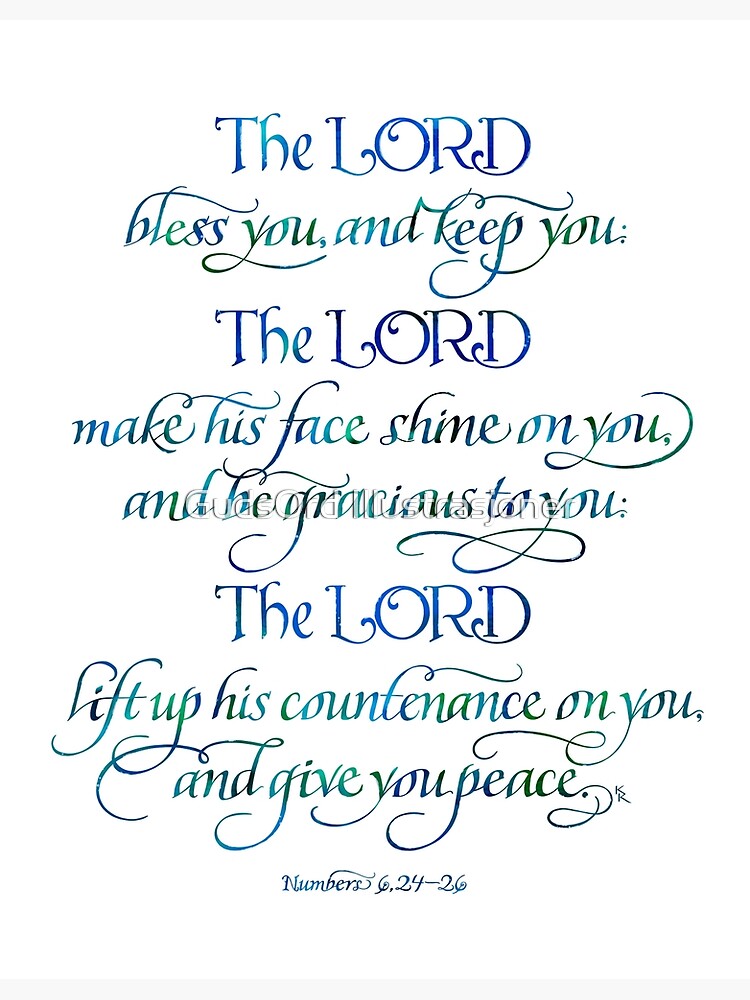 The LORD
bless you, and keep you:
The LORD
make his face shine on you,
and be gracious to you:
GudsOrd Illustrasjoner
The LORD
lift up his countenance on you,
and give you peace.
KR
Numbers 6,24–26